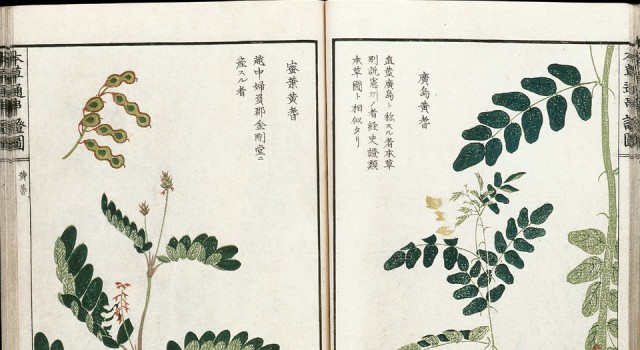 本草通串證圖
廣島黄耆
廣島ト称スル者本草
別説憲州ノ者経史證類
本草圖ト相似タリ
蜜葉黄耆
越中婦負郡金剛堂ニ
産スル者
本草通串證圖
黄耆